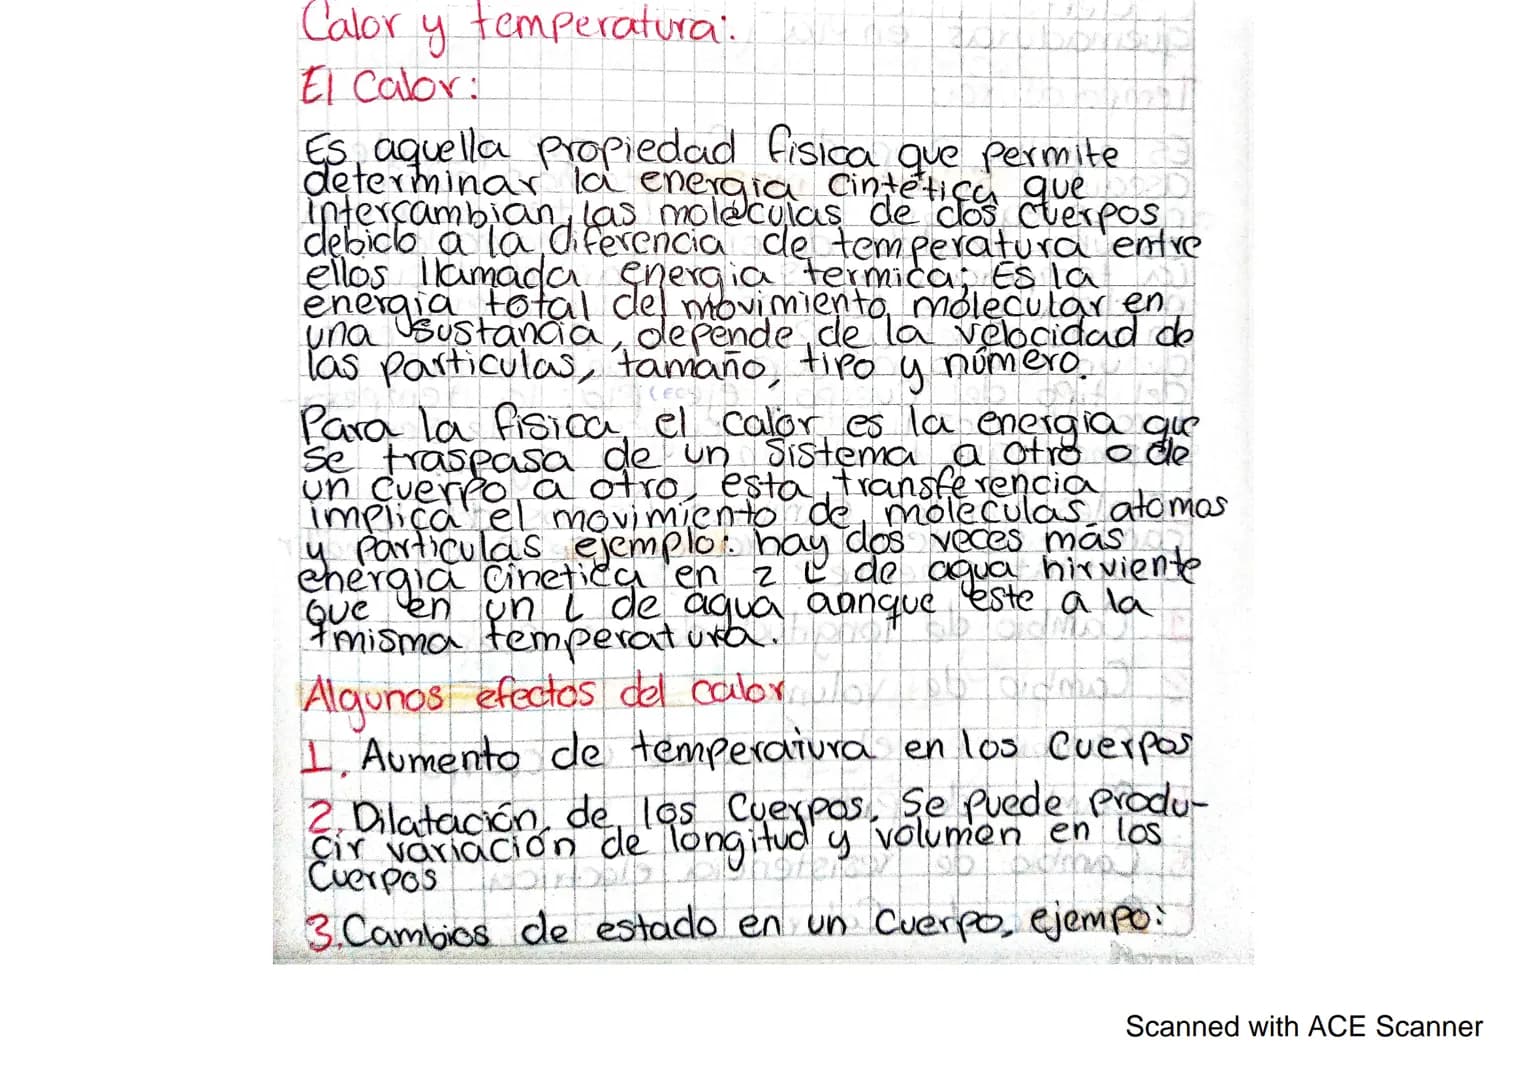 Calor y temperatura:
El Calor:
Es aquella propiedad fisica que permite
determinar la energia cintetica que
intercambian las moleculas de dos cuerpos
debido a la diferencia de temperatura entre
ellos llamada energia termica; Es la
energia total del movimiento molecular en
una sustancia, depende de la velocidad de
las particulas, tamaño, tipo y número.
Para la fisica el calor es la energia que
se traspasa de un sistema a otro o de
un cuerpo a otro, esta transferencia
implica el movimiento de moleculas atomos
y particulas ejemplo: hay dos veces más
energia cinetica en 2 L de agua hirviente
que en un L de agua aunque este a la
misma temperatura.
Algunos efectos del calor
1. Aumento de temperatura en los Cuerpos
2. Dilatación de los Cuerpos. Se puede produ-
cir variación de longitud y volumen en los
Cuerpos
3. Cambios de estado en un Cuerpo, ejempo:
Scanned with ACE Scanner